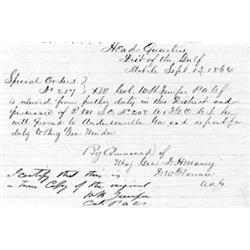 Head Quarters
Dist of the Gulf
Mobile Sept. 13. 1864
Special Orders }
No 227 } XIII Col. W H Jenifer P.A.C.S
is relieved from further duty in this District and
pursuance of P. S.O. No 208 A & I G O he
will proceed to Andersonville Ga and report for
duty to Brig Gen Winder
By Command of
Maj Gen D H Maury
I certify that this is
a true Copy of the original
W H Jenifer
Col P A C S
A A G